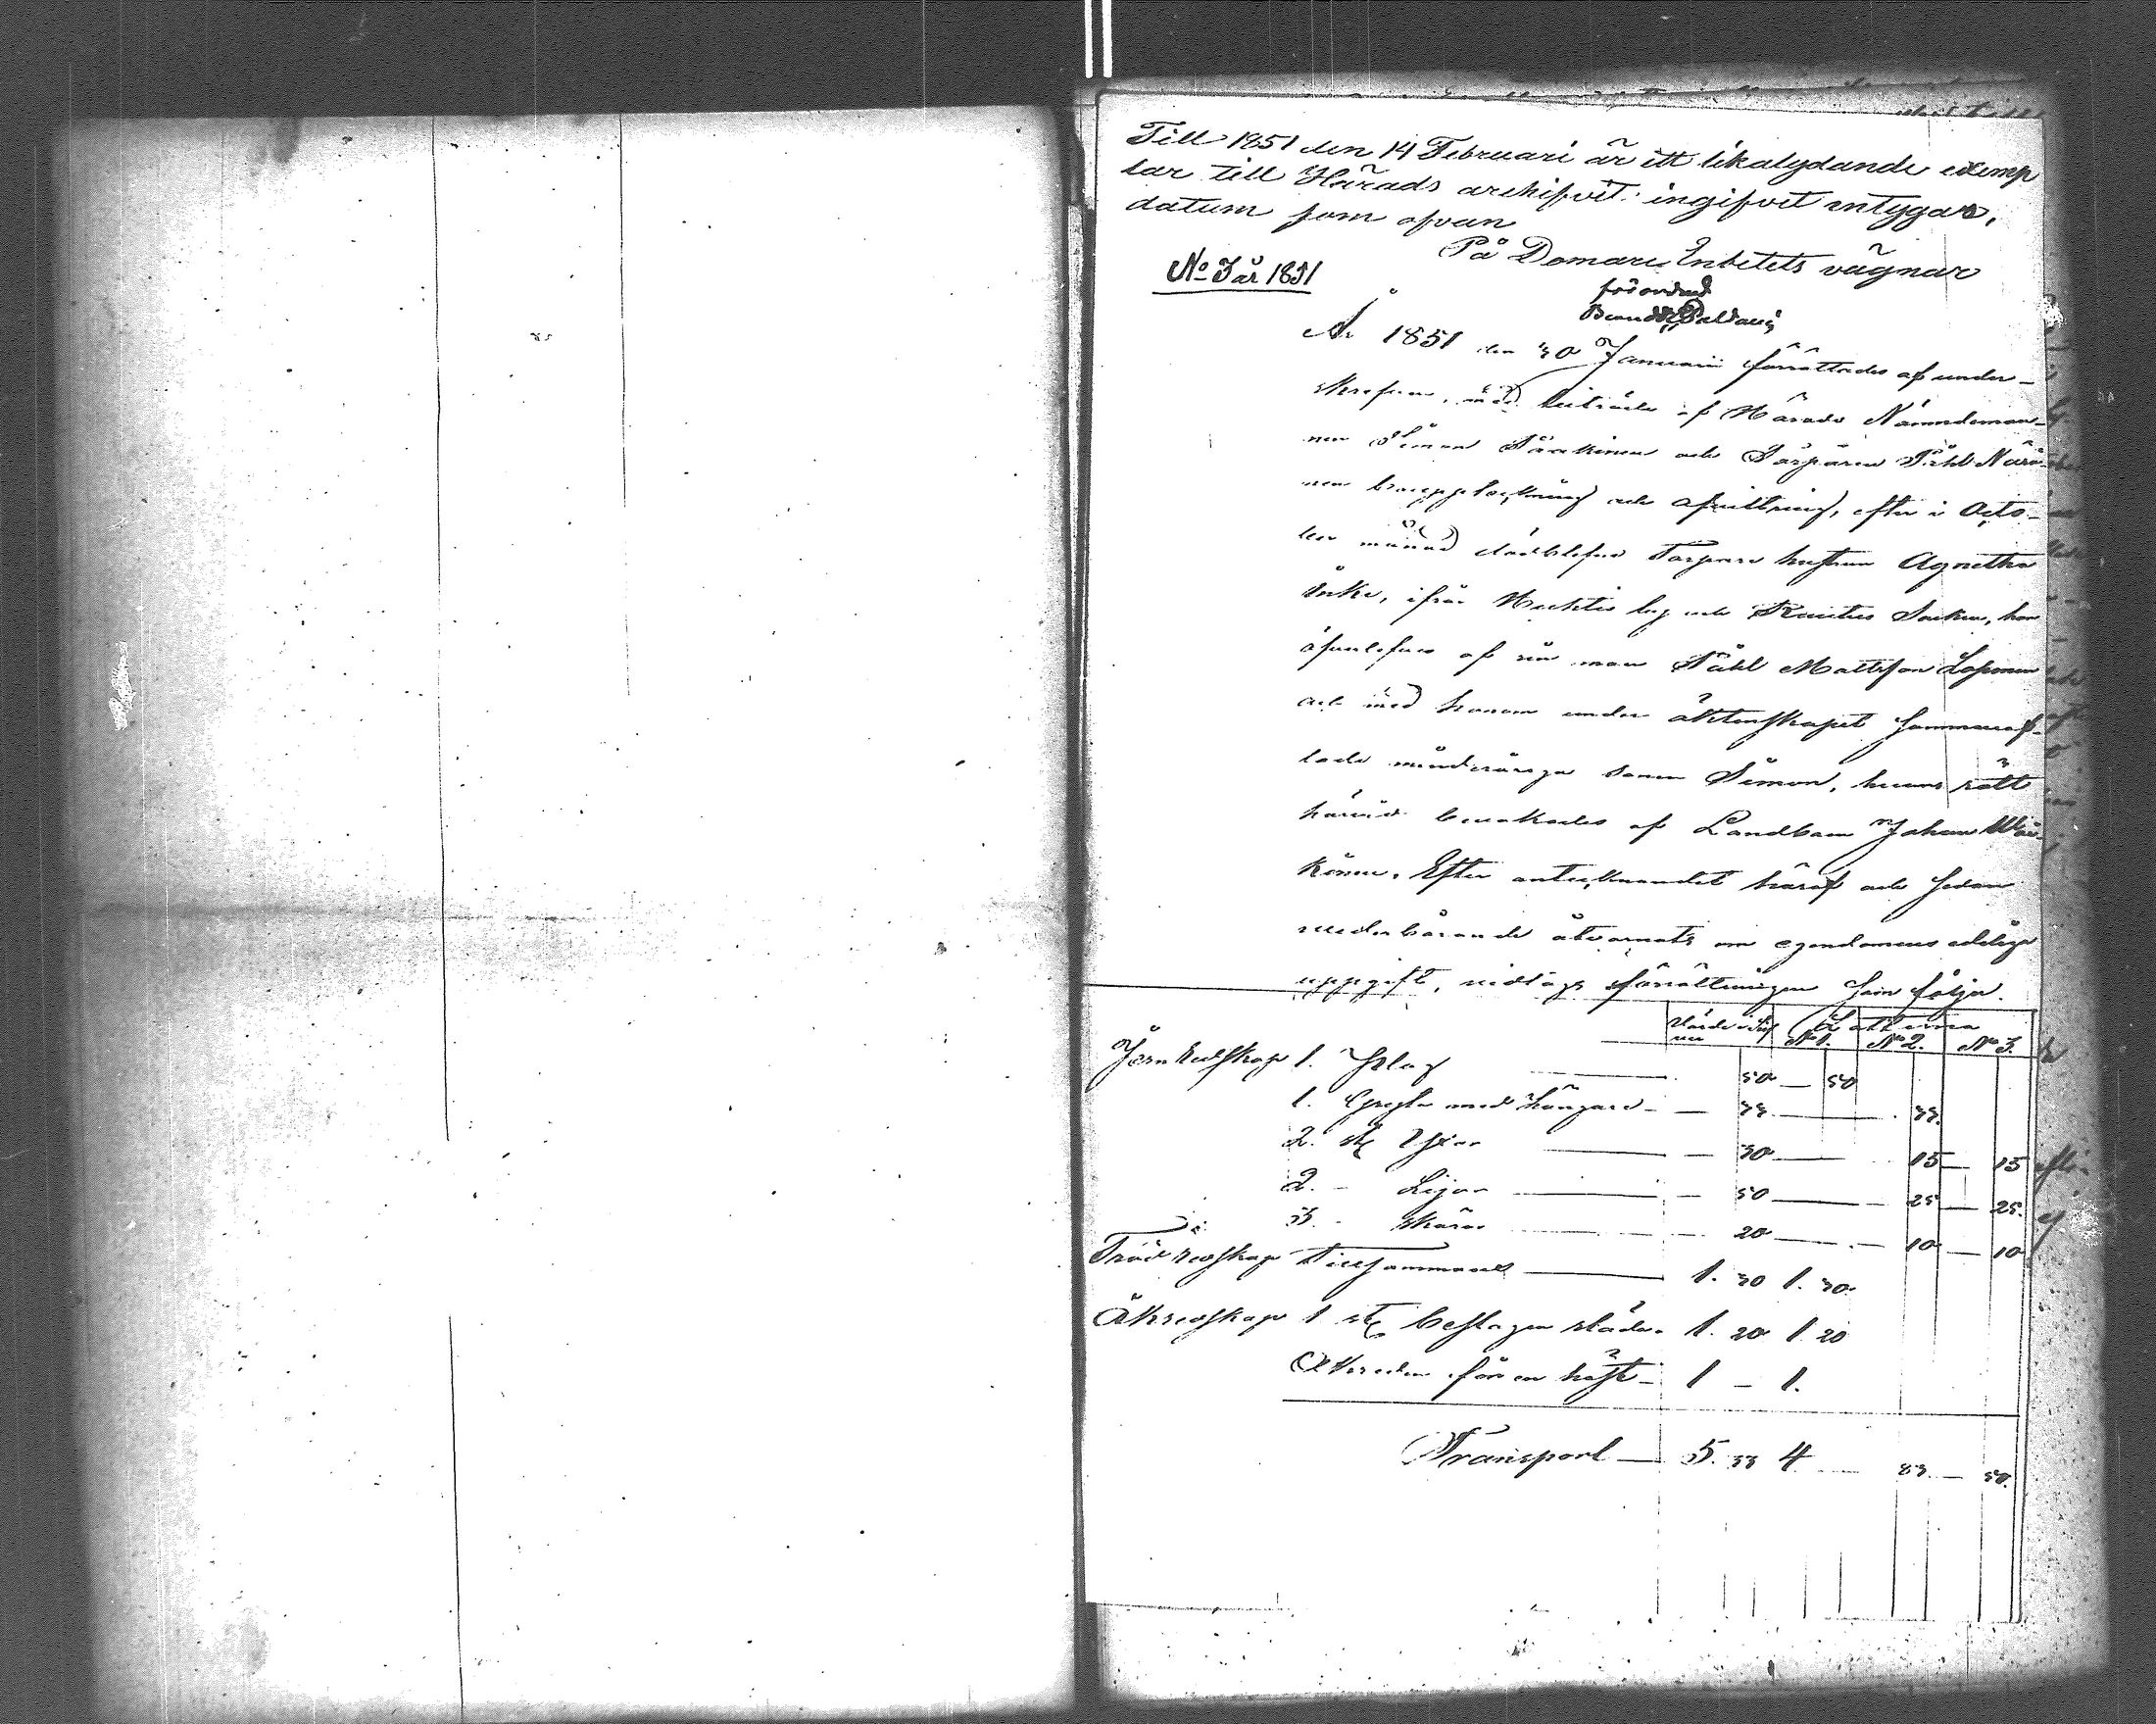 Till 1851 den 14 Februari är ett likalydande exemp
lar till Härads archifvet ingifvet intygar,
datum som ofvan
På Domare Embetets vägnar
No 3 år 1851
År 1851 den 30 Januarii förrättades af under-
skrefven, med biträde af Härads Nämndeman-
nen Simon Pååkinen och Påhl
nen bouppteckning och afvittring, efter i Octo-
ber månad dödblefne Torpare hustrun Agnetha
ifrån by och Socken, hon
åfverlefves af sin man Påhl Mattsson
och med honom under äktenskapet sammanaf-
lade minderåriga sonen Simon, hvars rätt
härvid bevakades af Landbon Johan
könen. Efter antecknandet häraf och sedan
vederbörande åtvarnats om egendomens edeliga
uppgift, vidtogs förrättningen som följer.
Värde i Silf
ver
Lotterna
No 1. No 2. No 3.
Jern Redskap 1. 50 — 50
1. med hängare — 33. — 33.
2. st Yxor — 30 — 15 — 15
2. - Lijor — 50 — 25 — 25.
3. - skäror — 20 — 10 — 10
Träd redskap Tillsammans — 1. 30 1. 30.
Åkredskap 1 st beslagen släde. 1. 20 1. 20
Åkreden för en häst — 1 — 1.
Transport — 5. 33 4 — 83. — 50.